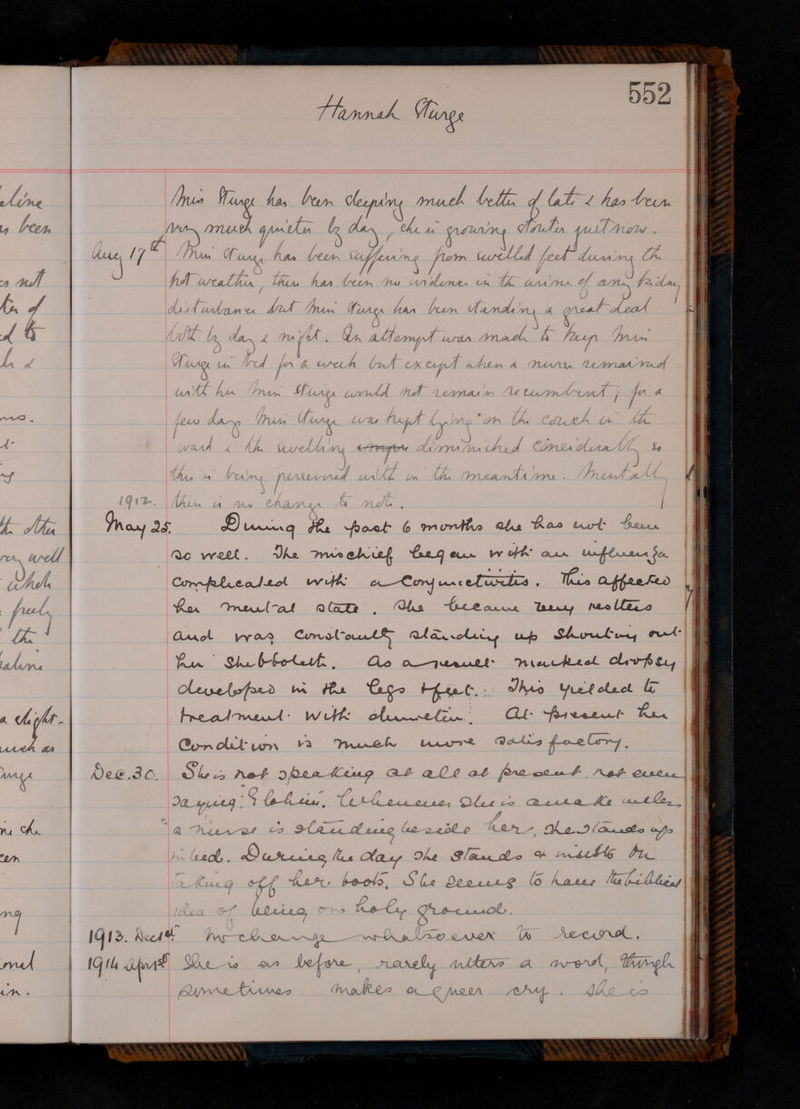 552
Hannah Sturge
Miss Sturge has been sleeping much better of late & has been
very much quieter by day, she is growing stouter just now.
Aug 17th Miss Sturge has been suffering from swelled feet during the
hot weather, there has been no evidence in the urine of any kidney
disturbance but Miss Sturge has been standing a great deal
both by day & night. An attempt was made to keep Miss
Sturge in bed for a week but except when a nurse remained
with her Miss Sturge would not remain recumbent; for a
few days Miss Sturge was kept lying on the couch in the
ward & the swelling diminished considerably so
this is being persevered with in the meantime. Mentally
1912. there is no change to note.
May 25. During the past 6 months she has not been
so well. The mischief began with an influenza
complicated with a Conjunctivitis. This affected
her mental state. She became very restless
and was constantly standing up shouting out
her Shibboleth. As a result marked dropsy
developed in the legs & feet. This yielded to
treatment with diuretin. At present her
Condition is much more satisfactory.
Dec. 30. She is not speaking at all at present, not even
saying: Elohim. Whenever she is awake unless
a nurse is standing beside her, she stands up
in bed. During the day she stands & insists on
taking off her boots. She seems to have the biblical
idea of being on holy ground.
1913. Dec 1st No change whatsoever to record.
1914 April She is as before, rarely utters a word, though
sometimes makes a queer cry. She is
line
been
not
of
d to
&
no.
the other
very well
which
freely
the
saline
a slight-
much as
she
en
ng
and
in.